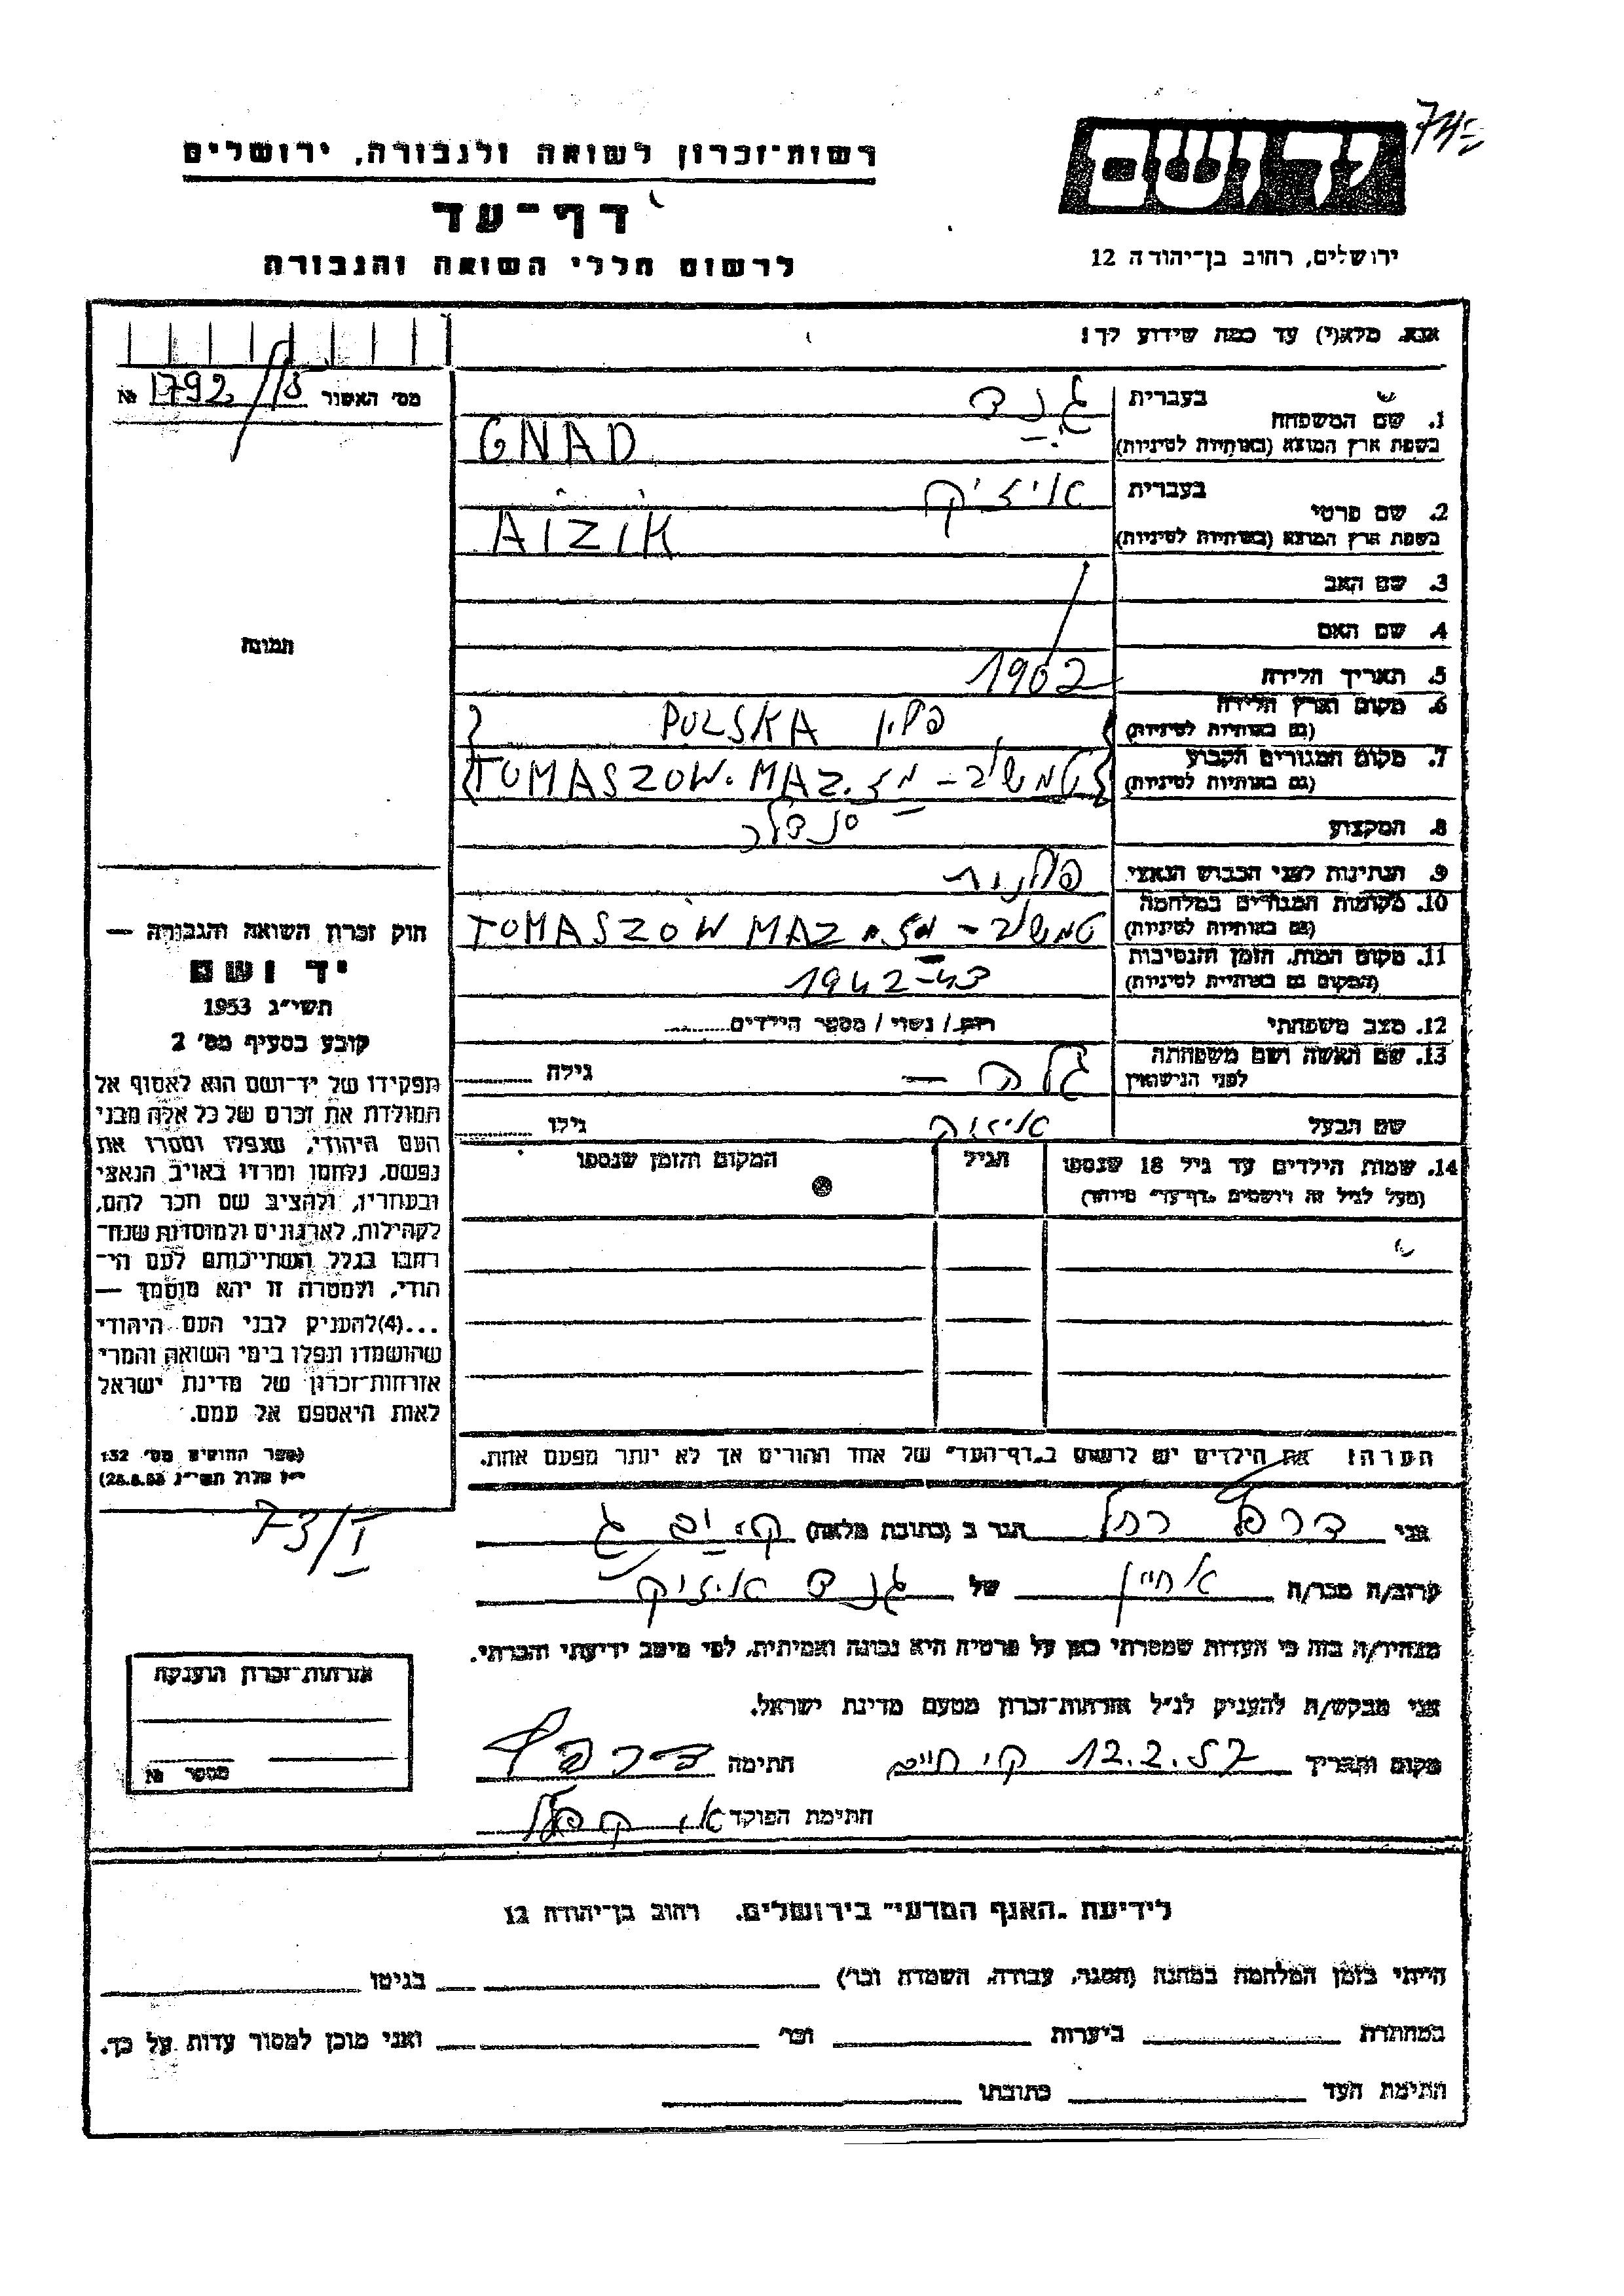 745
יד ושם
רשות־זכרון לשואה ולגבורה, ירושלים
דף־עד
לרשום חללי השואה והגבורה
ירושלים, רחוב בן־יהודה 12
אנא, מלא(י) עד כמה שידוע לך!
מס' האשור 1792 № 
1. שם המשפחה
בעברית גנד
בשפת ארץ המוצא (באותיות לטיניות) GNAD
2. שם פרטי
בעברית איזיק
בשפת ארץ המוצא (באותיות לטיניות) AIZIK
3. שם האב
4. שם האם
5. תאריך הלידה 1902
6. מקום וארץ הלידה
(גם באותיות לטיניות) פולין POLSKA
7. מקום המגורים הקבוע
(גם באותיות לטיניות) טמשוב - מז. TOMASZOW. MAZ.
8. המקצוע סנדלר
9. הנתינות לפני הכבוש הנאצי פולנית
10. מקומות המגורים במלחמה
(גם באותיות לטיניות) טמשוב - מז. TOMASZÓW MAZ
11. מקום המות, הזמן והנסיבות
(המקום גם באותיות לטיניות) 1942-43
12. מצב משפחתי רוק / נשוי / מספר הילדים
13. שם האשה ושם משפחתה
לפני הנישואין גילה
שם הבעל איזיק גילו
14. שמות הילדים עד גיל 18 שנספו
(מעל לגיל זה רושמים "דף־עד" מיוחד)
הגיל
המקום והזמן שנספו
הערה: את הילדים יש לרשום ב"דף־העד" של אחד ההורים אך לא יותר מפעם אחת.
תמונה
חוק זכרון השואה והגבורה —
יד ושם
תשי"ג 1953
קובע בסעיף מס' 2
תפקידו של יד־ושם הוא לאסוף אל
המולדת את זכרם של כל אלה מבני
העם היהודי, שנפלו ומסרו את
נפשם, נלחמו ומרדו באויב הנאצי
ובעוזריו, ולהציב שם וזכר להם,
לקהילות, לארגונים ולמוסדות שנח־
רבו בגלל השתייכותם לעם הי־
הודי, ולמטרה זו יהא מוסמך —
...(4)להעניק לבני העם היהודי
שהושמדו ונפלו בימי השואה והמרי
אזרחות־זכרון של מדינת ישראל
לאות היאספם אל עמם.
(ספר החוקים מס' 132
י"ז אלול תשי"ג 28.8.53)
73/I
אני רחל הגר ב (כתובת מלאה)
קרוב/ה מכר/ה אחיין של גנד איזיק
מצהיר/ה בזה כי העדות שמסרתי כאן על פרטיה היא נכונה ואמיתית, לפי מיטב ידיעתי והכרתי.
אני מבקש/ת להעניק לנ"ל אזרחות־זכרון מטעם מדינת ישראל.
מקום ותאריך קר' חיים 12.2.57 חתימה
חתימת הפוקד
אזרחות־זכרון הוענקה
מספר №
לידיעת "האגף המדעי" בירושלים, רחוב בן־יהודה 12
הייתי בזמן המלחמה במחנה (הסגר, עבודה, השמדה וכו') בגיטו
במחתרת ביערות וכו' ואני מוכן למסור עדות על כך.
חתימת העד כתובתו